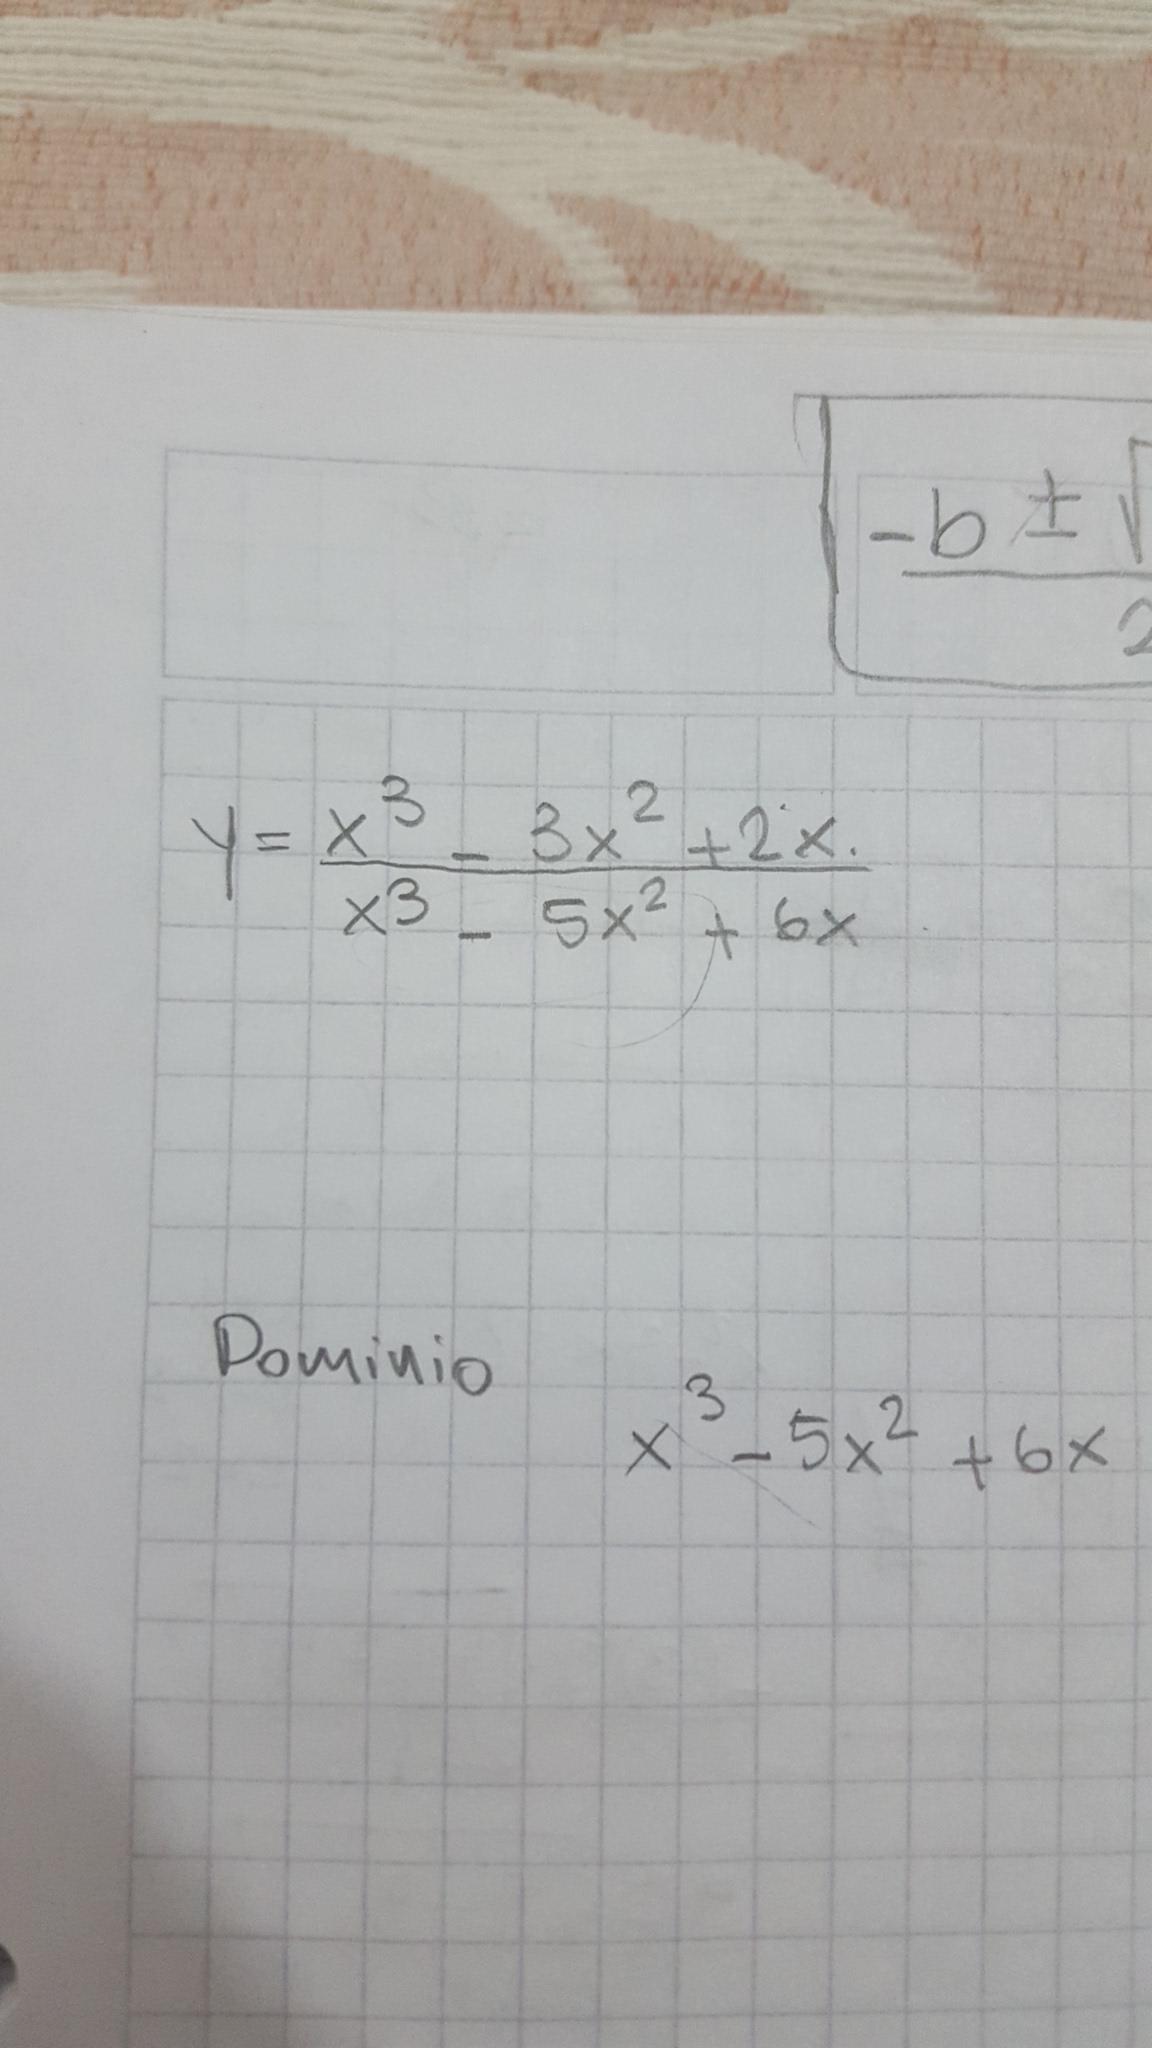 -b ± √
2
y = x³ - 3x² + 2x.
x³ - 5x² + 6x
Dominio
x³ - 5x² + 6x